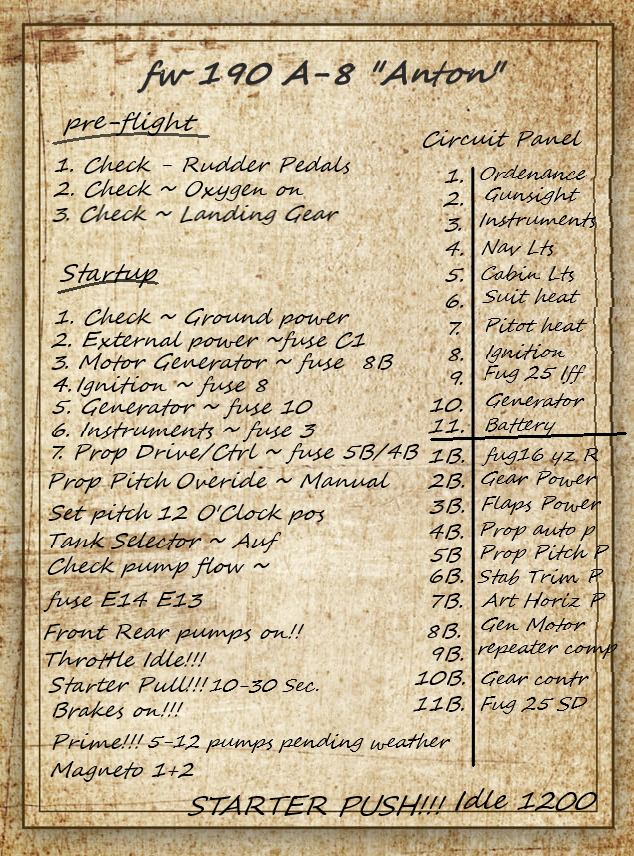 fw 190 A-8 "Anton"
pre-flight
1. Check - Rudder Pedals
2. Check ~ Oxygen on
3. Check ~ Landing Gear
Startup
1. Check ~ Ground power
2. External power ~fuse C1
3. Motor Generator ~ fuse 8B
4.Ignition ~ fuse 8
5. Generator ~ fuse 10
6. Instruments ~ fuse 3
7. Prop Drive/Ctrl ~ fuse 5B/4B
Prop Pitch Overide ~ Manual
Set pitch 12 O'Clock pos
Tank Selector ~ Auf
Check pump flow ~
fuse E14 E13
Front Rear pumps on!!
Throttle Idle!!!
Starter Pull!!! 10-30 Sec.
Brakes on!!!
Prime!!! 5-12 pumps pending weather
Magneto 1+2
STARTER PUSH!!! Idle 1200
Circuit Panel
1. Ordenance
2. Gunsight
3. Instruments
4. Nav Lts
5. Cabin Lts
6. Suit heat
7. Pitot heat
8. Ignition
9. Fug 25 Iff
10. Generator
11. Battery
1B. fug16 yz R
2B. Gear Power
3B. Flaps Power
4B. Prop auto p
5B Prop Pitch P
6B. Stab Trim P
7B. Art Horiz P
8B. Gen Motor
9B. repeater comp
10B. Gear contr
11B. Fug 25 SD